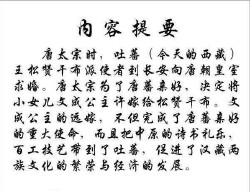 内容提要
唐太宗时，吐蕃（今天的西藏）
王松赞干布派使者到长安向唐朝皇室
求婚。唐太宗为了唐蕃亲好，决定将
小女儿文成公主许嫁给松赞干布。文
成公主的远嫁，不但完成了唐蕃亲好
的重大使命，而且把中原的诗书礼乐，
百工技艺带到了吐蕃，促进了汉藏两
族文化的繁荣与经济的发展。